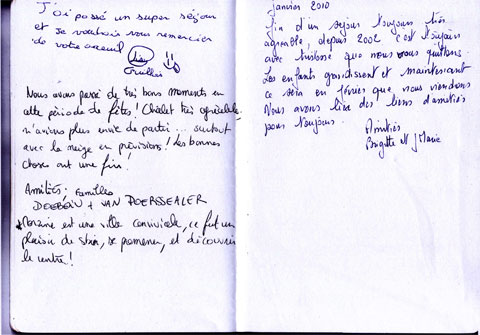 J'ai passé un super séjour
et je voudrais vous remercier
de votre accueil
Nous avons passé de très bons moments en
cette période de fêtes! Chalet très agréable,
n'avions plus envie de partir... surtout
avec la neige en prévisions! Les bonnes
choses ont une fin!
Amitiés, familles
+ VAN
Morzine est une ville conviviale, ce fut un
plaisir de skier, se promener, et découvrir
le centre!
Janvier 2010
Fin d'un séjour toujours très
agréable, depuis 2002 c'est toujours
avec tristesse que nous vous quittons.
Les enfants grandissent et maintenant
ce sera en février que nous viendrons
Nous avons liés des liens d'amitiés
pour toujours.
Amitiés
Brigitte et J Marie